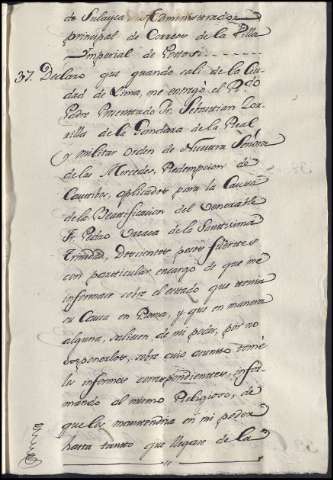 de Sulayca Administrador
principal de Correos de la Villa
Imperial de Potosi.
37. Declaro que quando salí de la Ciu-
dad de Lima, me entregó el R.do
Padre Presentado Fr. Sebastian
de la del Real
y militar Orden de Nuestra Señora
de las Mercedes, Redempcion de
Cautivos, aplicados para la Causa
de la Beatificacion del Venerable
Fr. Pedro Urraca de la Santisima
Trinidad, doscientos pesos fuertes
con particular encargo de que me
informase sobre el estado que tenia
su Causa en Roma, y que en manera
alguna, saliesen de mi poder, por no
exponerlos, sobre cuio asunto tomé
los informes correspondientes, infor-
mando al mismo Religioso, de
que los mantendria en mi poder
hasta tanto que llegase de la